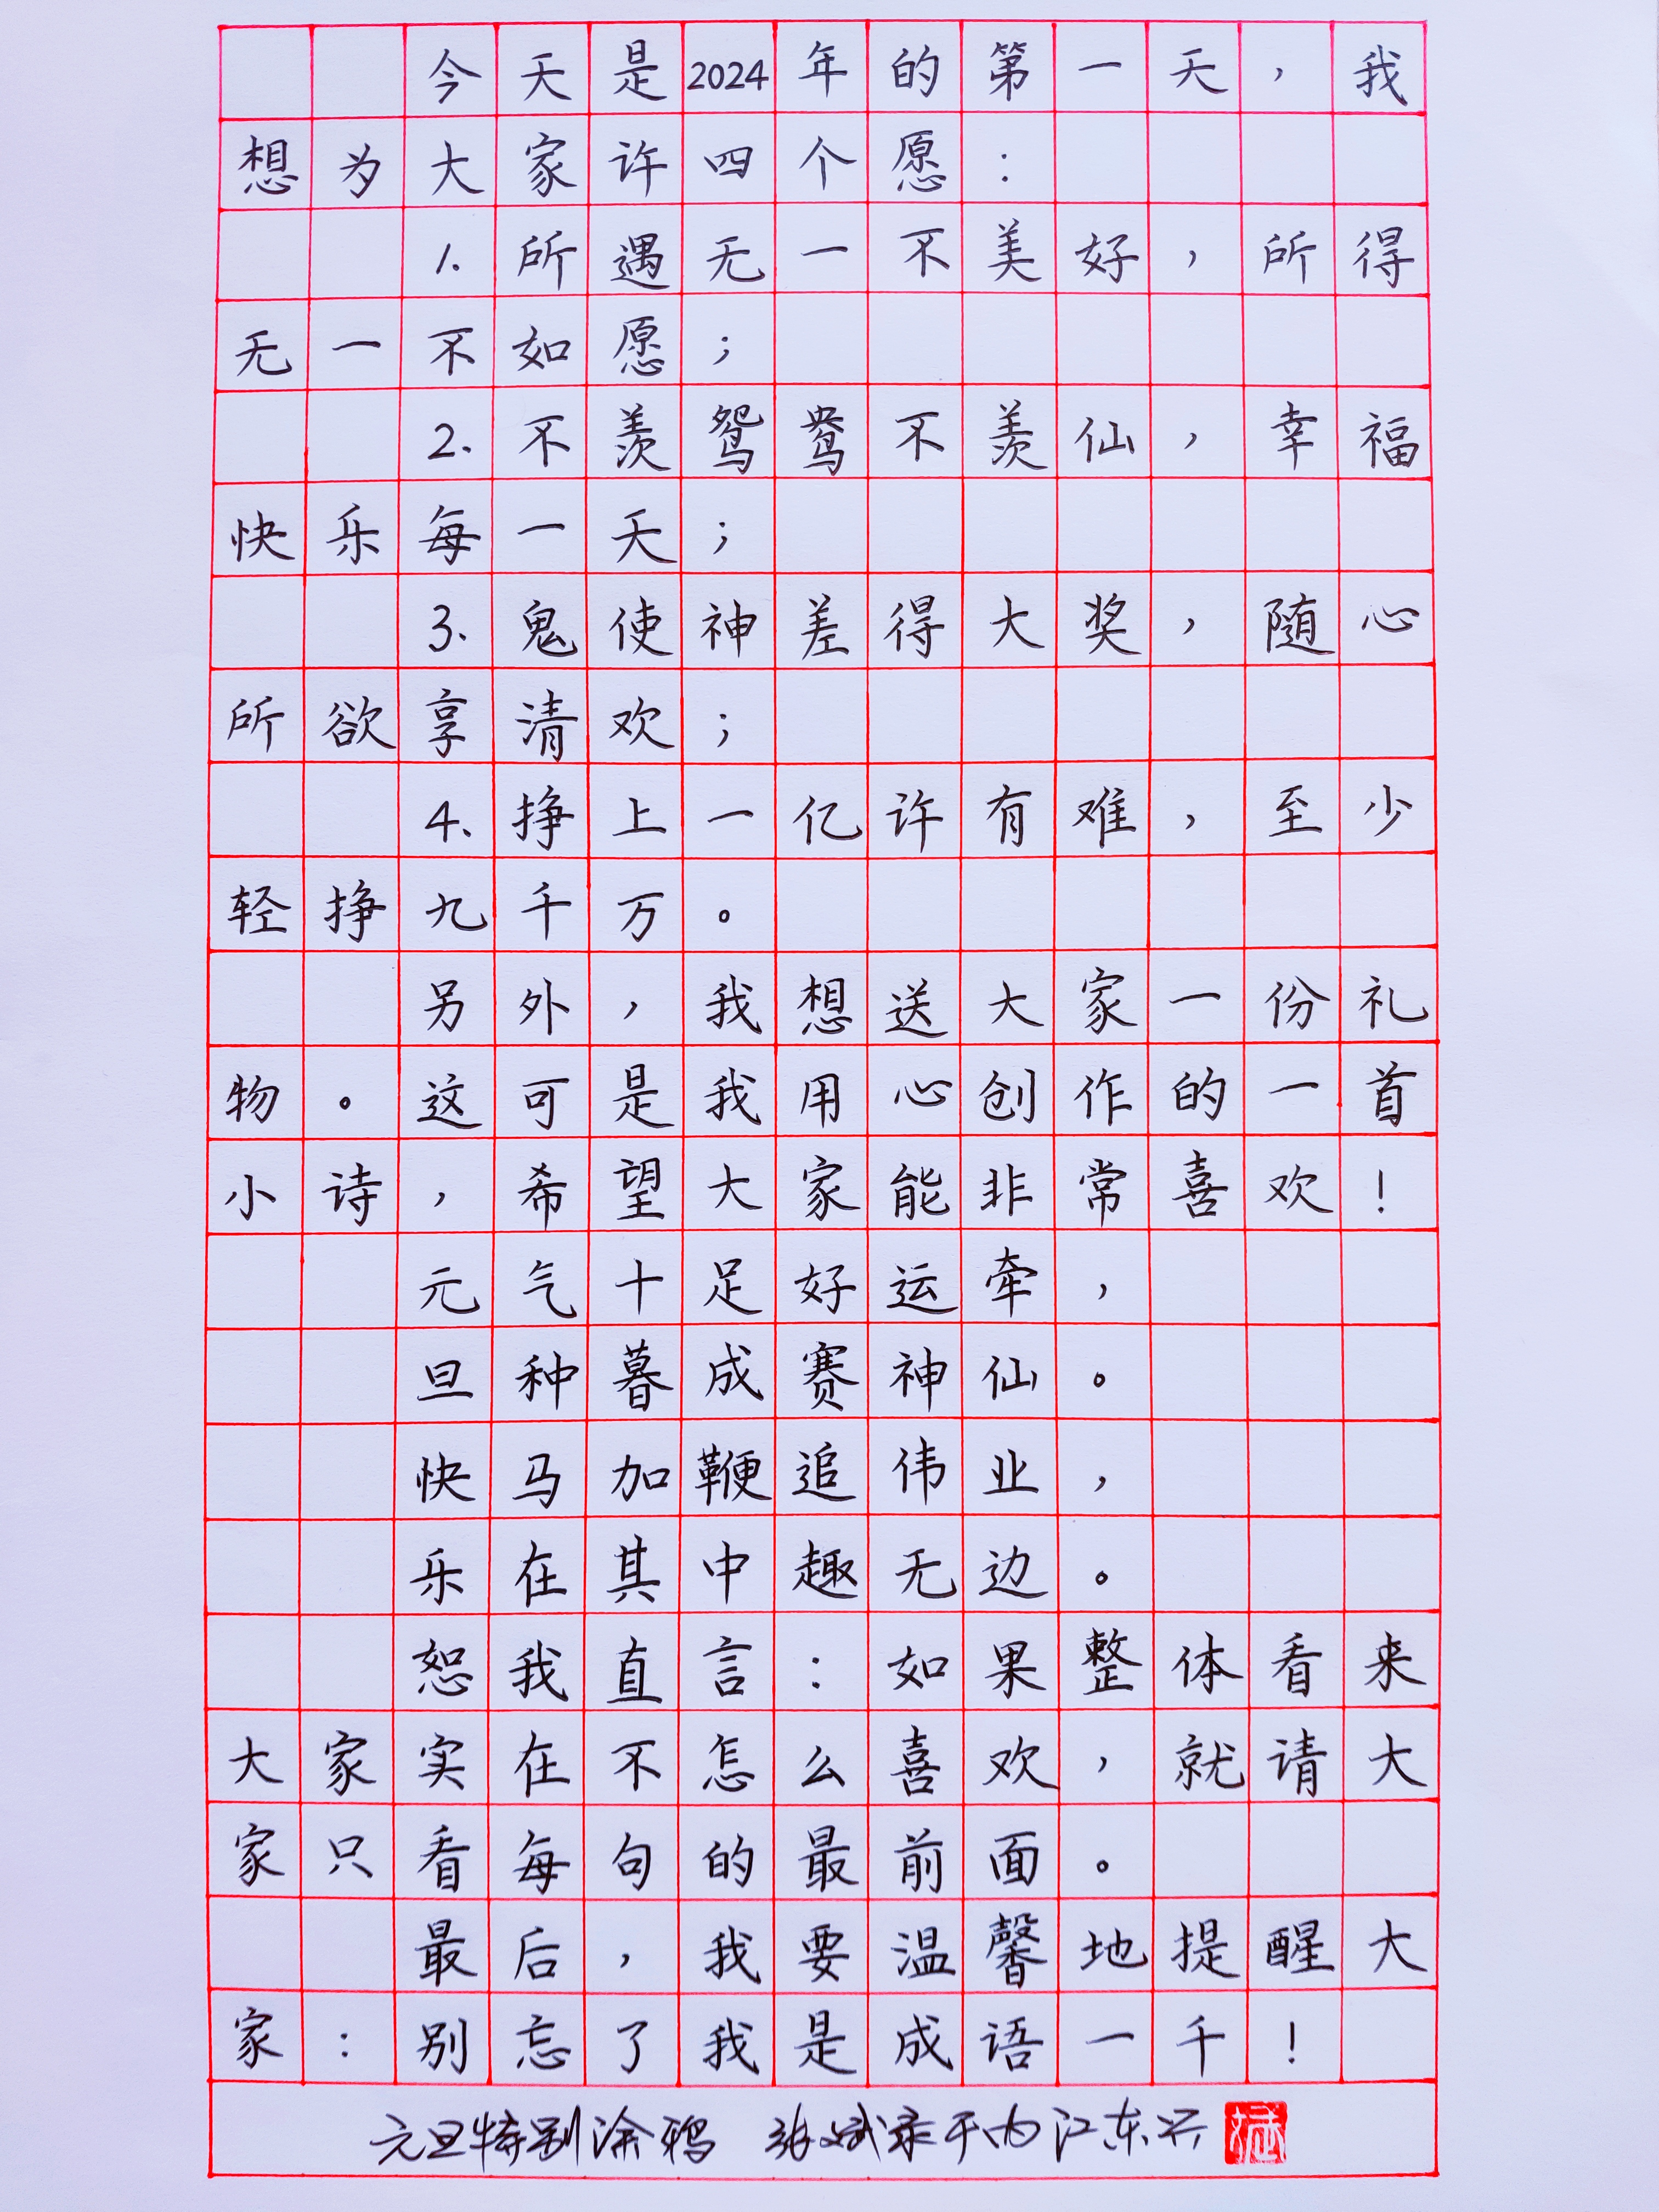 今天是2024年的第一天，我
想为大家许四个愿：
1.所遇无一不美好，所得
无一不如愿；
2.不羡鸳鸯不羡仙，幸福
快乐每一天；
3.鬼使神差得大奖，随心
所欲享清欢；
4.挣上一亿许有难，至少
轻挣九千万。
另外，我想送大家一份礼
物。这可是我用心创作的一首
小诗，希望大家能非常喜欢！
元气十足好运牵，
旦种暮成赛神仙。
快马加鞭追伟业，
乐在其中趣无边。
恕我直言：如果整体看来
大家实在不怎么喜欢，就请大
家只看每句的最前面。
最后，我要温馨地提醒大
家：别忘了我是成语一千！
元旦特别涂鸦 张斌录于内江东兴